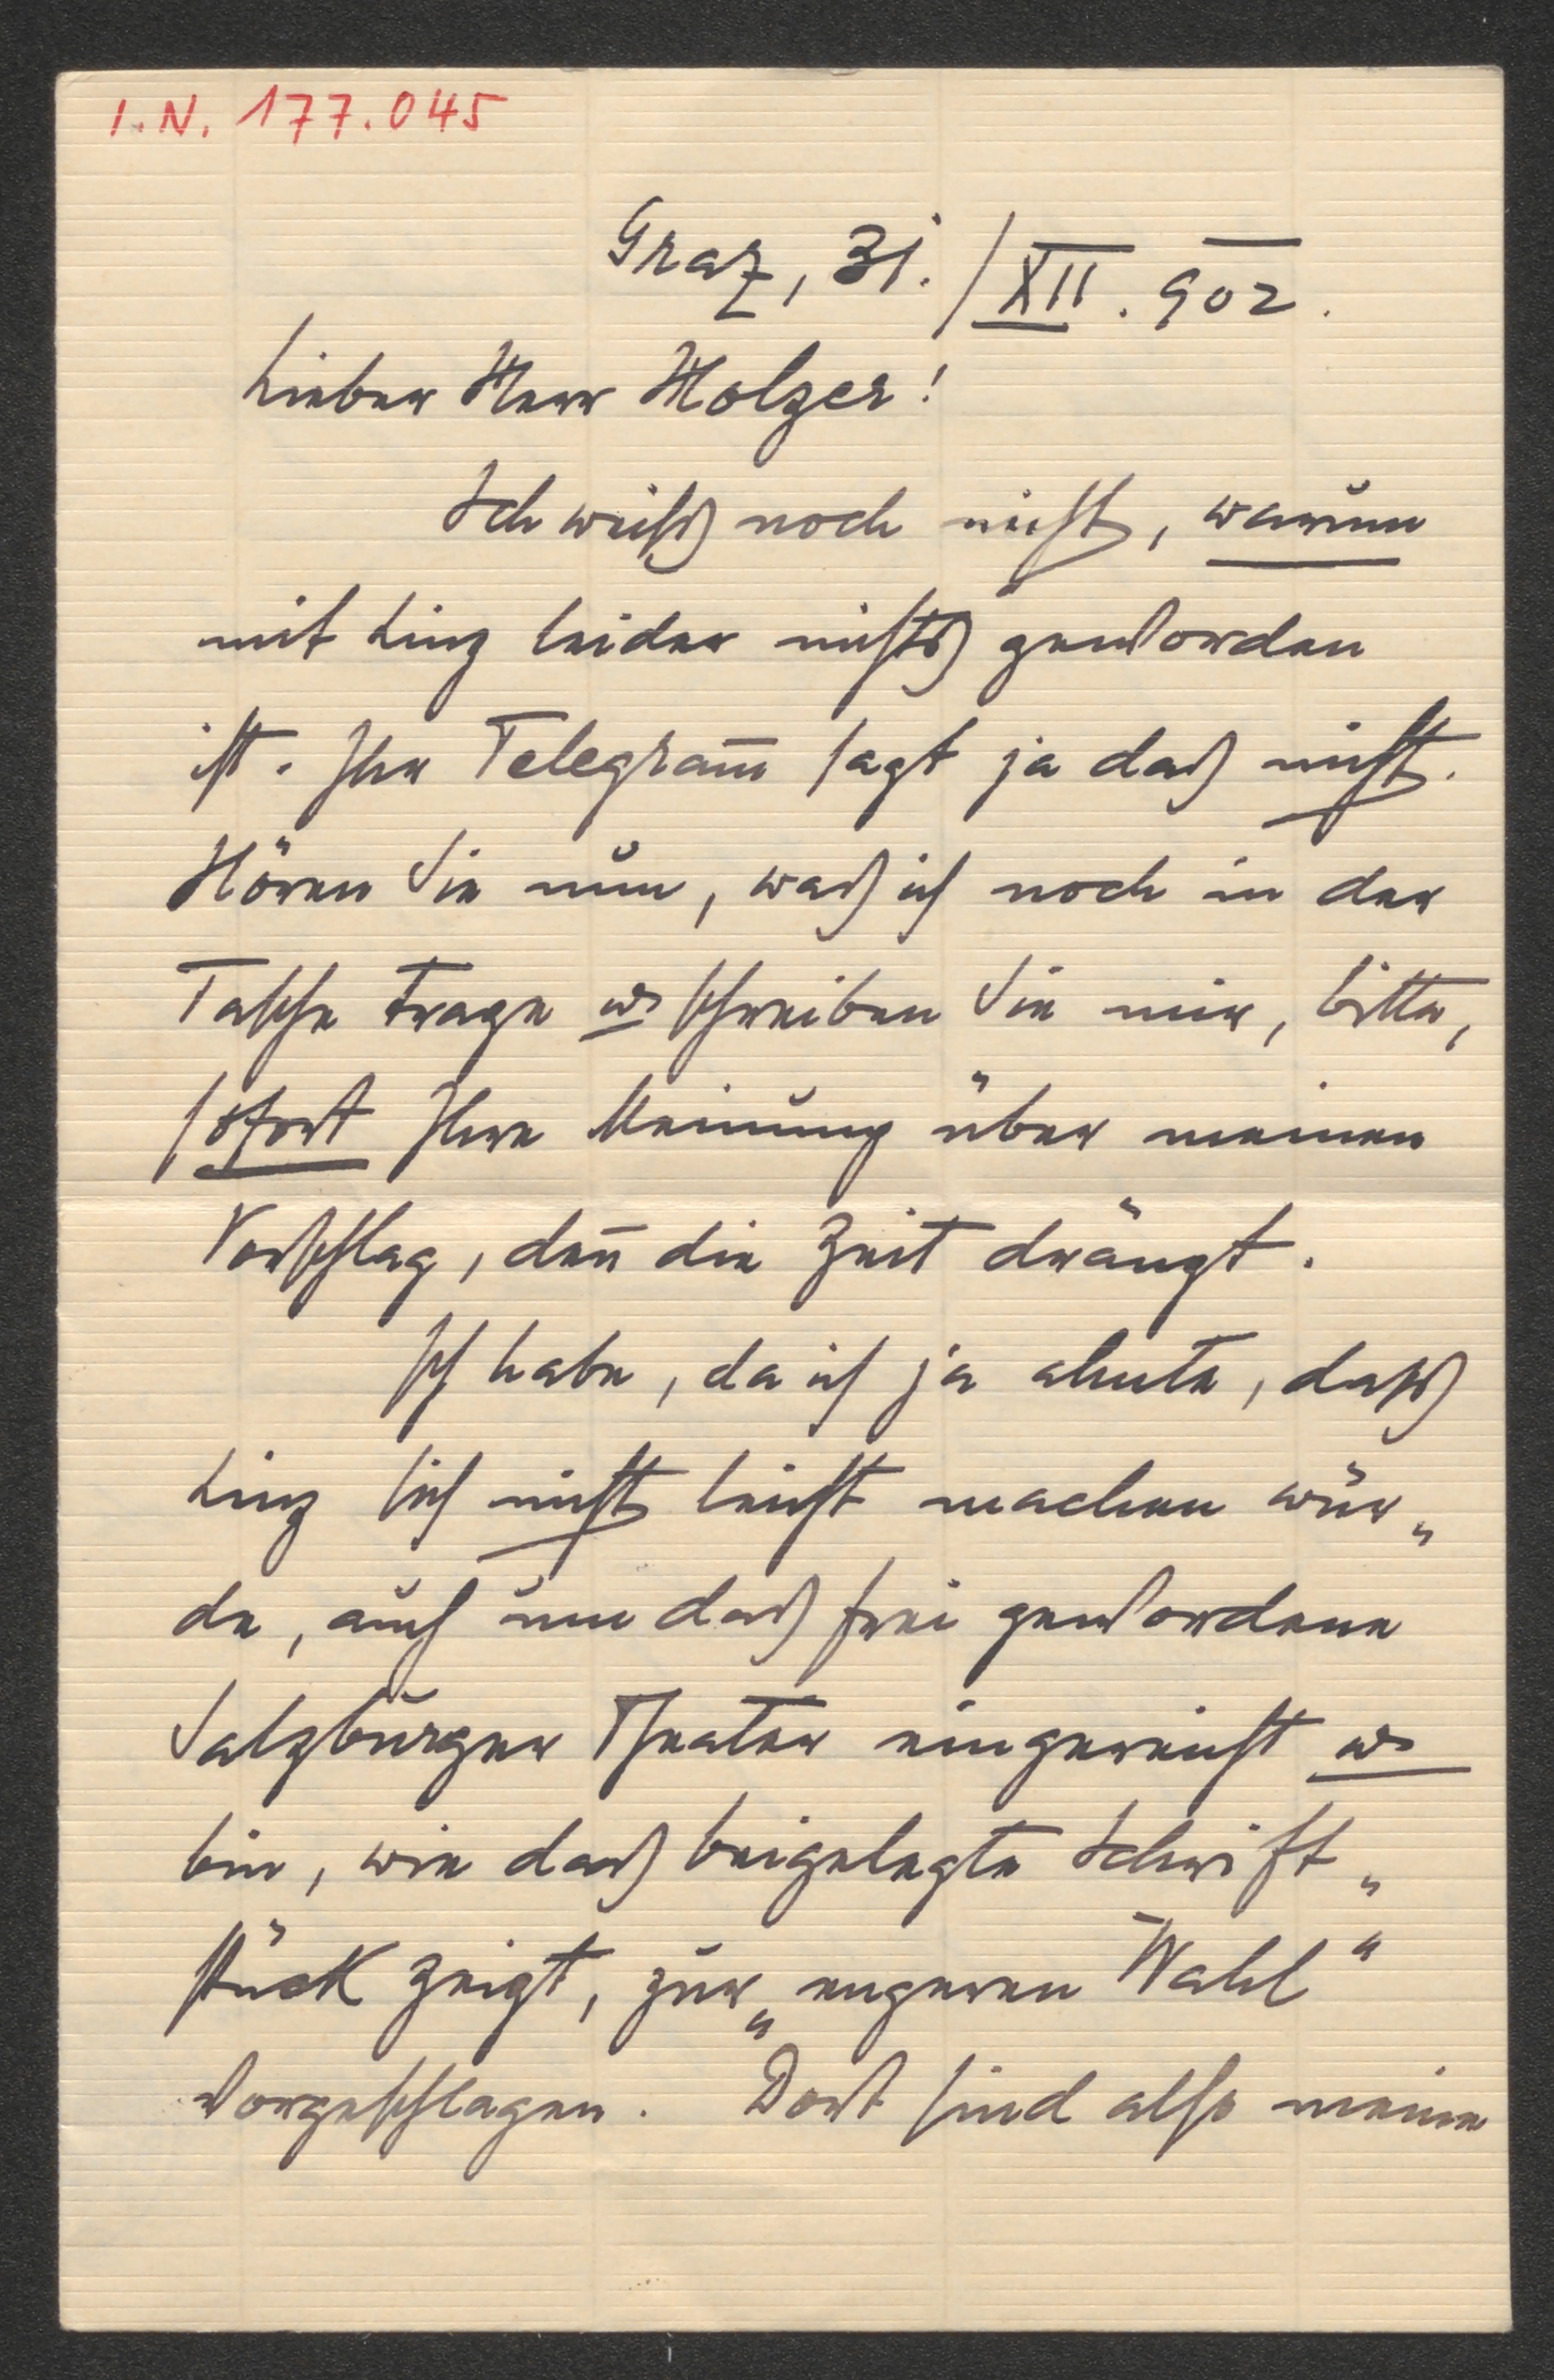 I.N. 177.045
Graz, 31./XII. 902.
Lieber Herr Holzer!
Ich weiß noch nicht, warum
mit Linz leider nichts geworden
ist. Ihr Telegram̄ sagt ja das nicht.
Hören Sie nun, was ich noch in der
Tasche trage u. schreiben Sie mir, bitte,
sofort Ihre Meinung über meinen
Vorschlag, den̄ die Zeit drängt.
Ich habe, da ich ja ahnte, daß
Linz sich nicht leicht machen wür„
de, auch um das frei gewordene
Salzburger Theater eingereicht u.
bin, wie das beigelegte Schrift„
stück zeigt, zur „engeren Wahl“
vorgeschlagen. Dort sind also meine